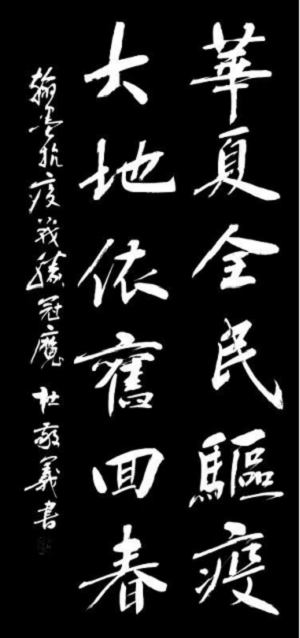 華夏全民驅疫
大地依舊回春
翰墨抗疫戰勝冠魔 杜敬義書